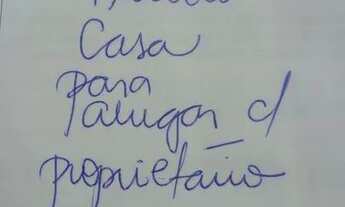 Casa
para
alugar c/
proprietário